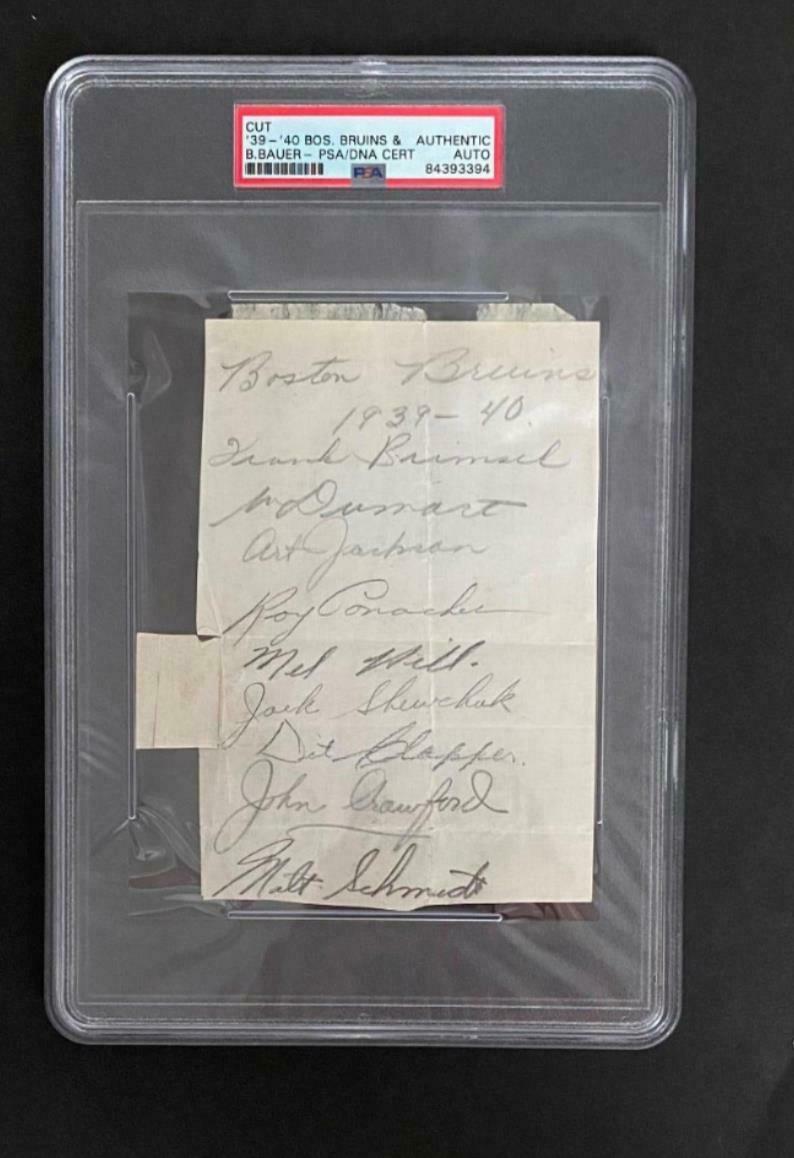 CUT
'39-'40 BOS. BRUINS & AUTHENTIC
B.BAUER- PSA/DNA CERT AUTO
PSA 84393394
Boston Bruins
1939-40.
Frank Brimsek
W Dumart
Art Jackson
Roy Conacher
Mel Hill.
Jack Shewchuk
Dit Clapper.
John Crawford
Milt Schmidt